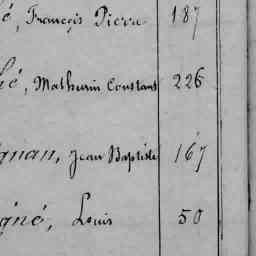 é, François Pierre 187
hé, Mathurin Constant 226
gnan, Jean Baptiste 167
gné, Louis 50